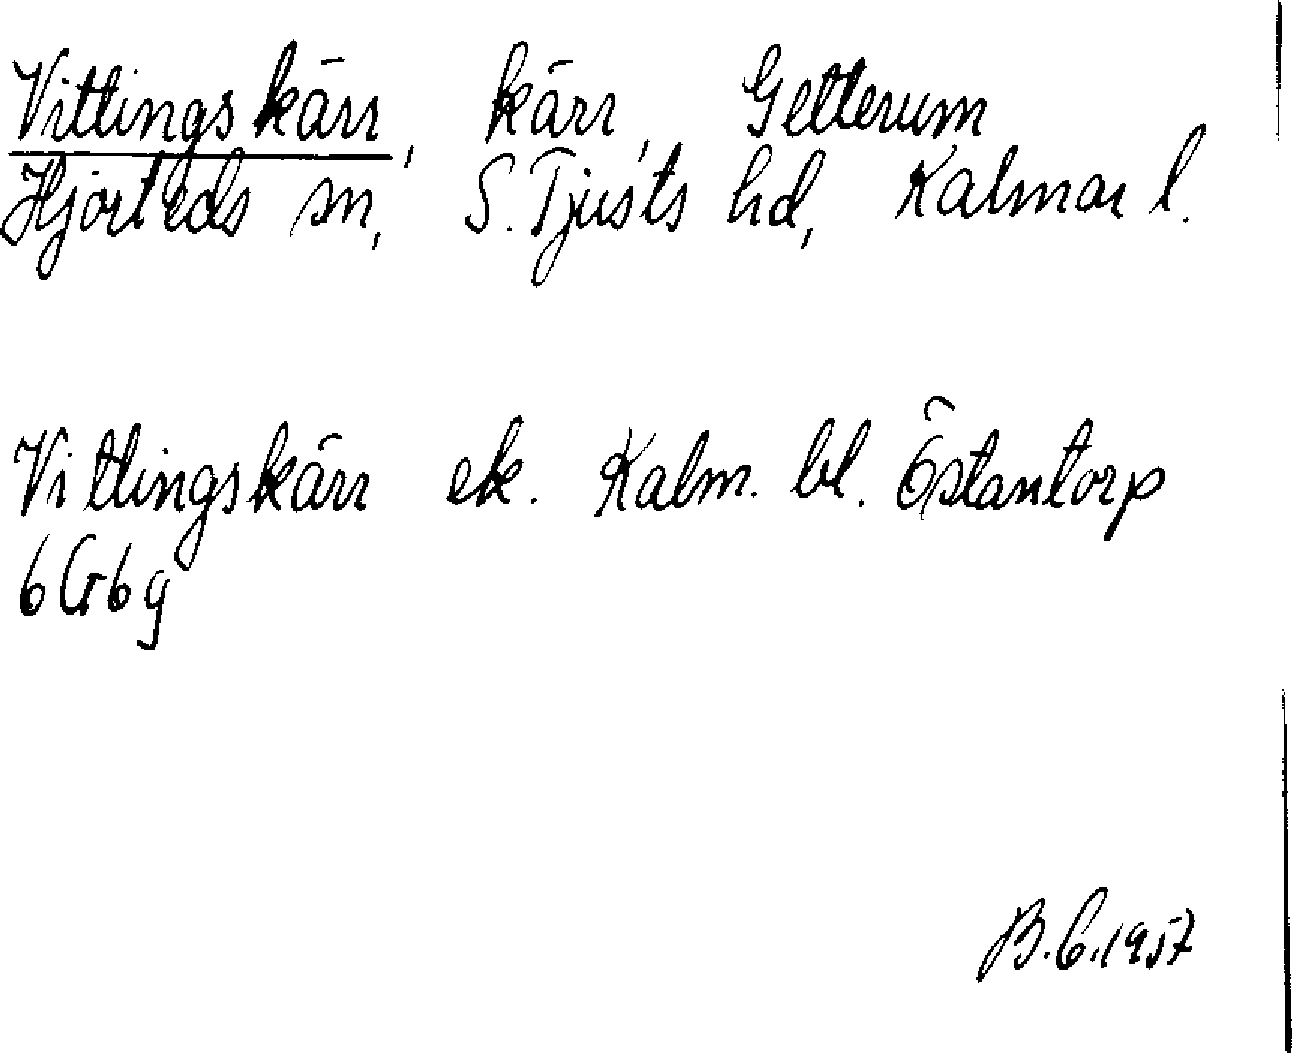 Vittingskärr, kärr, Getterum
Hjorteds sn, S. Tjusts hd, Kalmar l.
Vittingskärr ek. Kalm. bl. Östantorp
6G6g
B.C.1957